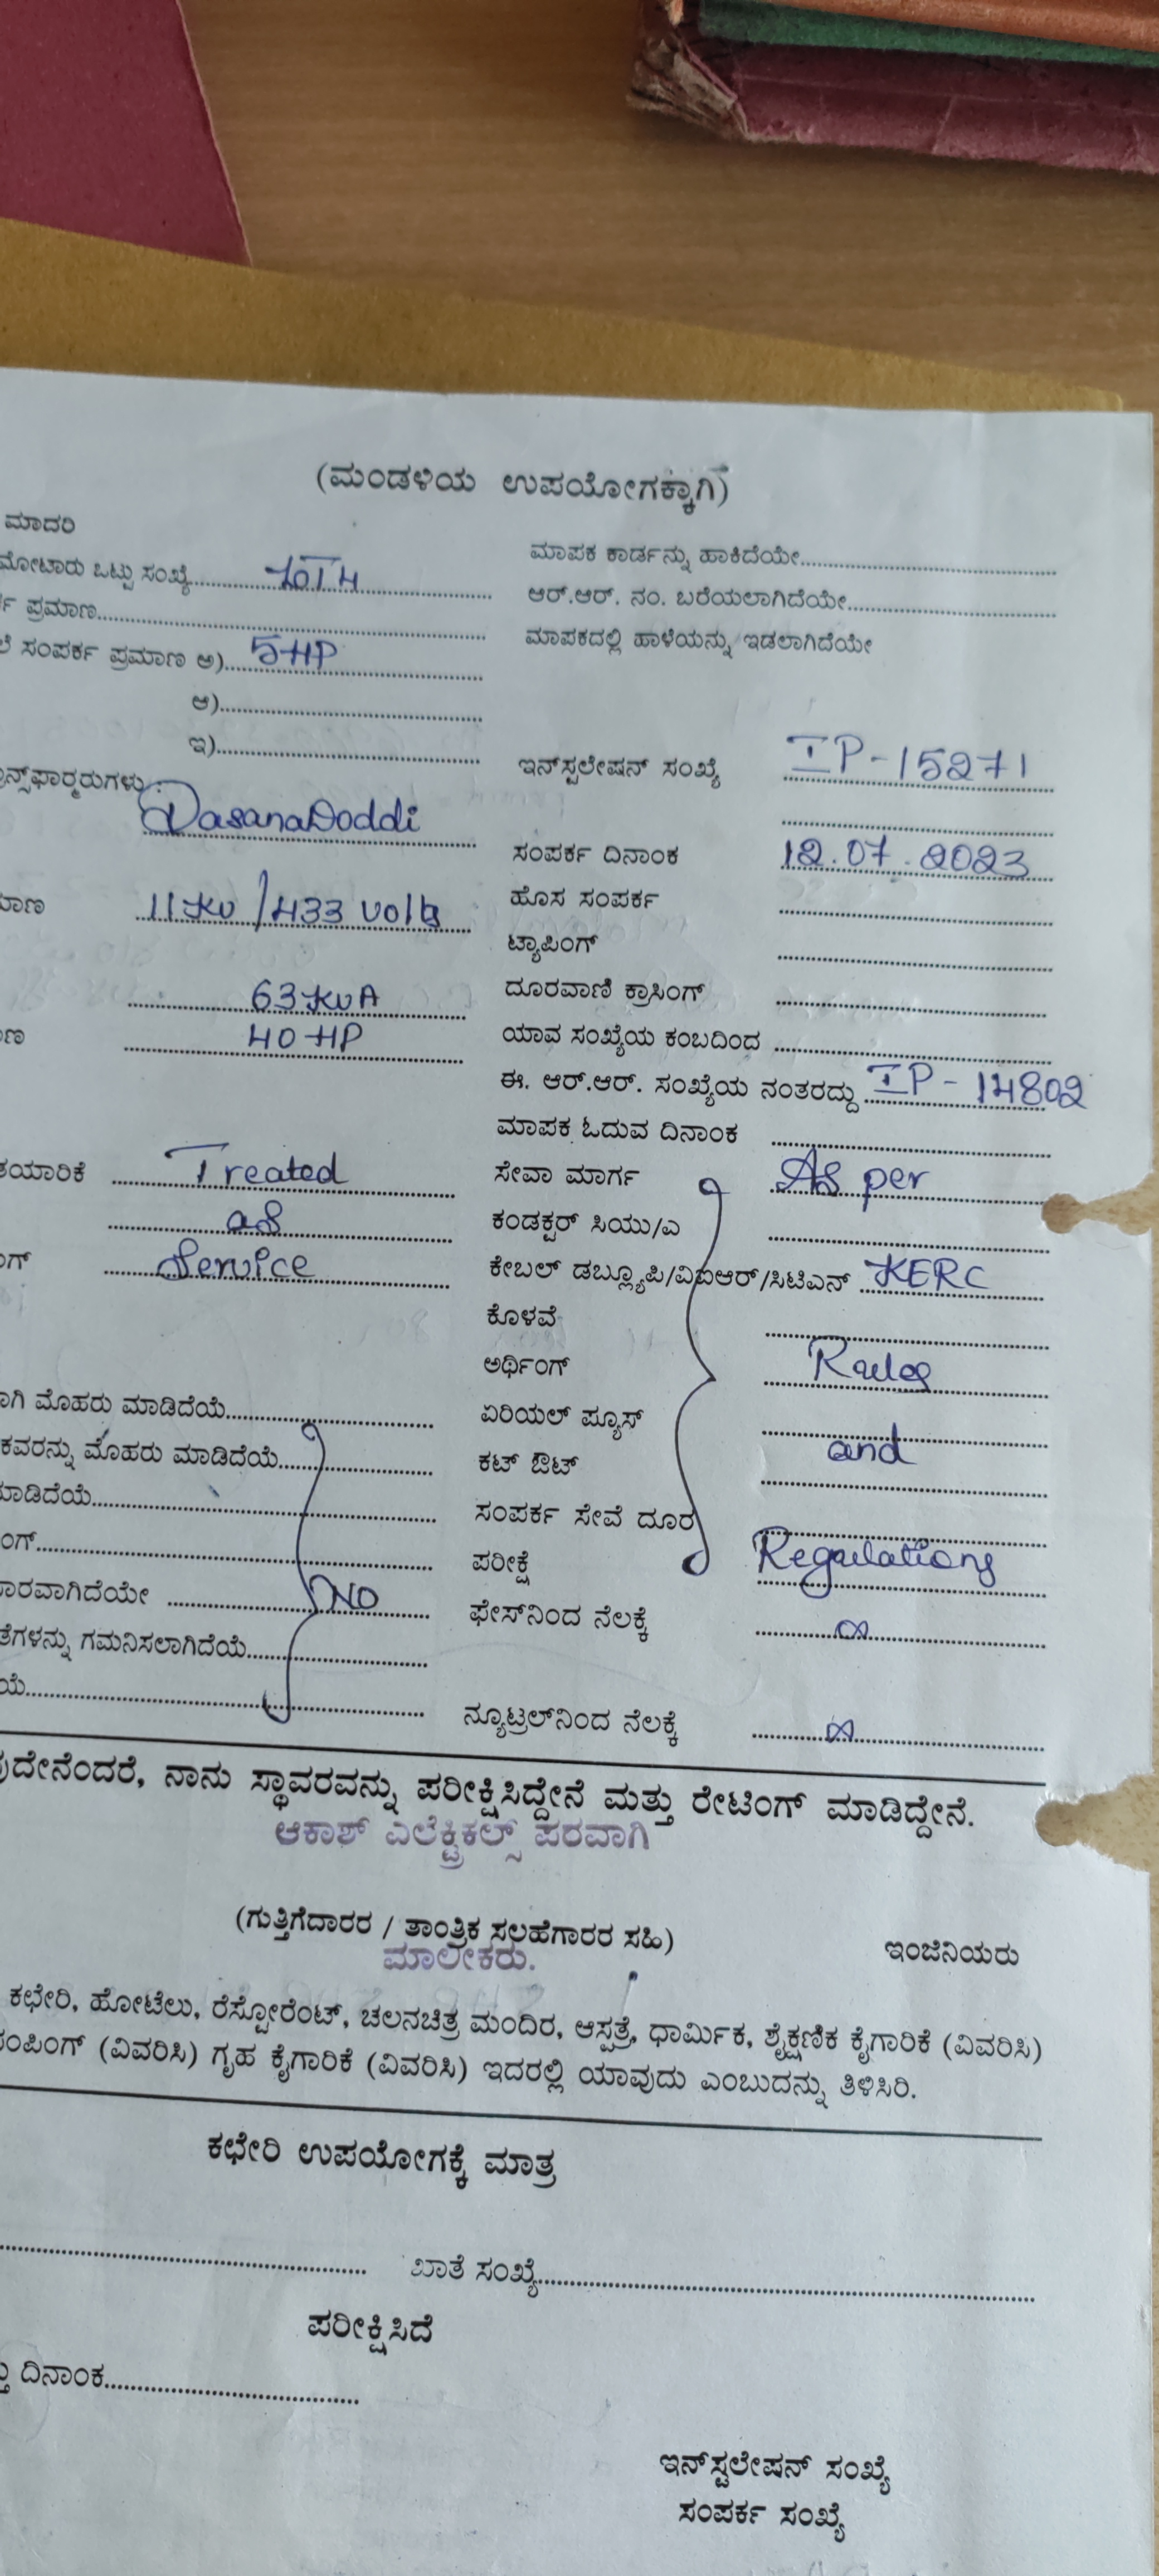 (ಮಂಡಳಿಯ ಉಪಯೋಗಕ್ಕಾಗಿ)
ಮಾದರಿ
ಮಾಪಕ ಕಾರ್ಡನ್ನು ಹಾಕಿದೆಯೇ
ಮೋಟಾರು ಒಟ್ಟು ಸಂಖ್ಯೆ
ಆರ್.ಆರ್. ನಂ. ಬರೆಯಲಾಗಿದೆಯೇ
ಪ್ರಮಾಣ
ಮಾಪಕದಲ್ಲಿ ಹಾಳೆಯನ್ನು ಇಡಲಾಗಿದೆಯೇ
ಸಂಪರ್ಕ ಪ್ರಮಾಣ ಅ) 5HP
ಆ)
ಇ)
ಇನ್‌ಸ್ಟಲೇಷನ್ ಸಂಖ್ಯೆ IP-15271
ನ್ಸ್‌ಫಾರ್ಮರುಗಳು:
DasanaDoddi
ಸಂಪರ್ಕ ದಿನಾಂಕ 12.07.2023
ಹೊಸ ಸಂಪರ್ಕ
11KV/433 Volts
ಟ್ಯಾಪಿಂಗ್
63KVA
ದೂರವಾಣಿ ಕ್ರಾಸಿಂಗ್
40 HP
ಯಾವ ಸಂಖ್ಯೆಯ ಕಂಬದಿಂದ
ಈ. ಆರ್.ಆರ್. ಸಂಖ್ಯೆಯ ನಂತರದ್ದು IP-14802
ಮಾಪಕ ಓದುವ ದಿನಾಂಕ
ತಯಾರಿಕೆ Treated
ಸೇವಾ ಮಾರ್ಗ As per
as
ಕಂಡಕ್ಟರ್ ಸಿಯು/ಎ
Service
ಕೇಬಲ್ ಡಬ್ಲ್ಯೂಪಿ/ವಿಐಆರ್/ಸಿಟಿಎಸ್ KERC
ಕೊಳವೆ
ಅರ್ಥಿಂಗ್ Rules
ಮೊಹರು ಮಾಡಿದೆಯೆ
ಏರಿಯಲ್ ಫ್ಯೂಸ್
ಕವರನ್ನು ಮೊಹರು ಮಾಡಿದೆಯೆ
ಕಟ್ ಔಟ್ and
ಮಾಡಿದೆಯೆ
ಸಂಪರ್ಕ ಸೇವೆ ದೂರ
ಪರೀಕ್ಷೆ Regulations
NO
ಫೇಸ್‌ನಿಂದ ನೆಲಕ್ಕೆ ∞
ಗಮನಿಸಲಾಗಿದೆಯೆ
ನ್ಯೂಟ್ರಲ್‌ನಿಂದ ನೆಲಕ್ಕೆ ∞
ನಾನು ಸ್ಥಾವರವನ್ನು ಪರೀಕ್ಷಿಸಿದ್ದೇನೆ ಮತ್ತು ರೇಟಿಂಗ್ ಮಾಡಿದ್ದೇನೆ.
ಆಕಾಶ್ ಎಲೆಕ್ಟ್ರಿಕಲ್ಸ್ ಪರವಾಗಿ
(ಗುತ್ತಿಗೆದಾರರ / ತಾಂತ್ರಿಕ ಸಲಹೆಗಾರರ ಸಹಿ) ಇಂಜಿನಿಯರು
ಮಾಲೀಕರು.
ಕಛೇರಿ, ಹೋಟೆಲು, ರೆಸ್ಟೋರೆಂಟ್, ಚಲನಚಿತ್ರ ಮಂದಿರ, ಆಸ್ಪತ್ರೆ, ಧಾರ್ಮಿಕ, ಶೈಕ್ಷಣಿಕ ಕೈಗಾರಿಕೆ (ವಿವರಿಸಿ)
ಪಂಪಿಂಗ್ (ವಿವರಿಸಿ) ಗೃಹ ಕೈಗಾರಿಕೆ (ವಿವರಿಸಿ) ಇದರಲ್ಲಿ ಯಾವುದು ಎಂಬುದನ್ನು ತಿಳಿಸಿರಿ.
ಕಛೇರಿ ಉಪಯೋಗಕ್ಕೆ ಮಾತ್ರ
ಖಾತೆ ಸಂಖ್ಯೆ
ಪರೀಕ್ಷಿಸಿದೆ
ದಿನಾಂಕ
ಇನ್‌ಸ್ಟಲೇಷನ್ ಸಂಖ್ಯೆ
ಸಂಪರ್ಕ ಸಂಖ್ಯೆ